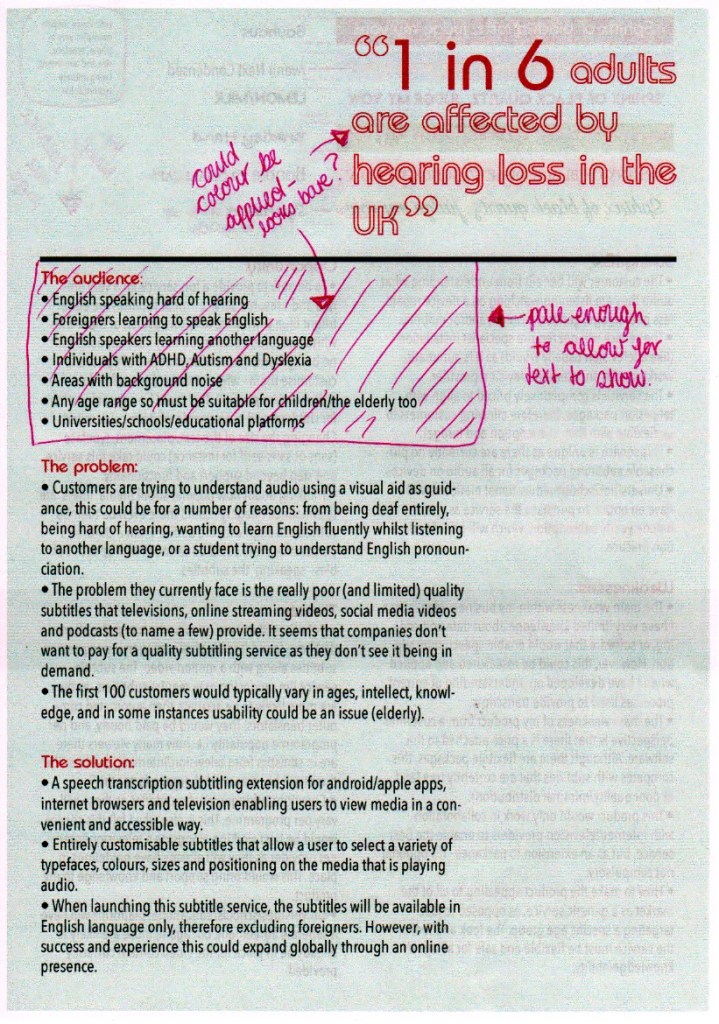 “1 in 6 adults
are affected by
hearing loss in the
UK”
could
colour be
applied-
looks bare?
The audience:
• English speaking hard of hearing
• Foreigners learning to speak English
• English speakers learning another language
• Individuals with ADHD, Autism and Dyslexia
• Areas with background noise
• Any age range so must be suitable for children/the elderly too
• Universities/schools/educational platforms
pale enough
to allow for
text to show.
The problem:
• Customers are trying to understand audio using a visual aid as guid-
ance, this could be for a number of reasons: from being deaf entirely,
being hard of hearing, wanting to learn English fluently whilst listening
to another language, or a student trying to understand English pronoun-
ciation.
• The problem they currently face is the really poor (and limited) quality
subtitles that televisions, online streaming videos, social media videos
and podcasts (to name a few) provide. It seems that companies don’t
want to pay for a quality subtitling service as they don’t see it being in
demand.
• The first 100 customers would typically vary in ages, intellect, knowl-
edge, and in some instances usability could be an issue (elderly).
The solution:
• A speech transcription subtitling extension for android/apple apps,
internet browsers and television enabling users to view media in a con-
venient and accessible way.
• Entirely customisable subtitles that allow a user to select a variety of
typefaces, colours, sizes and positioning on the media that is playing
audio.
• When launching this subtitle service, the subtitles will be available in
English language only, therefore excluding foreigners. However, with
success and experience this could expand globally through an online
presence.